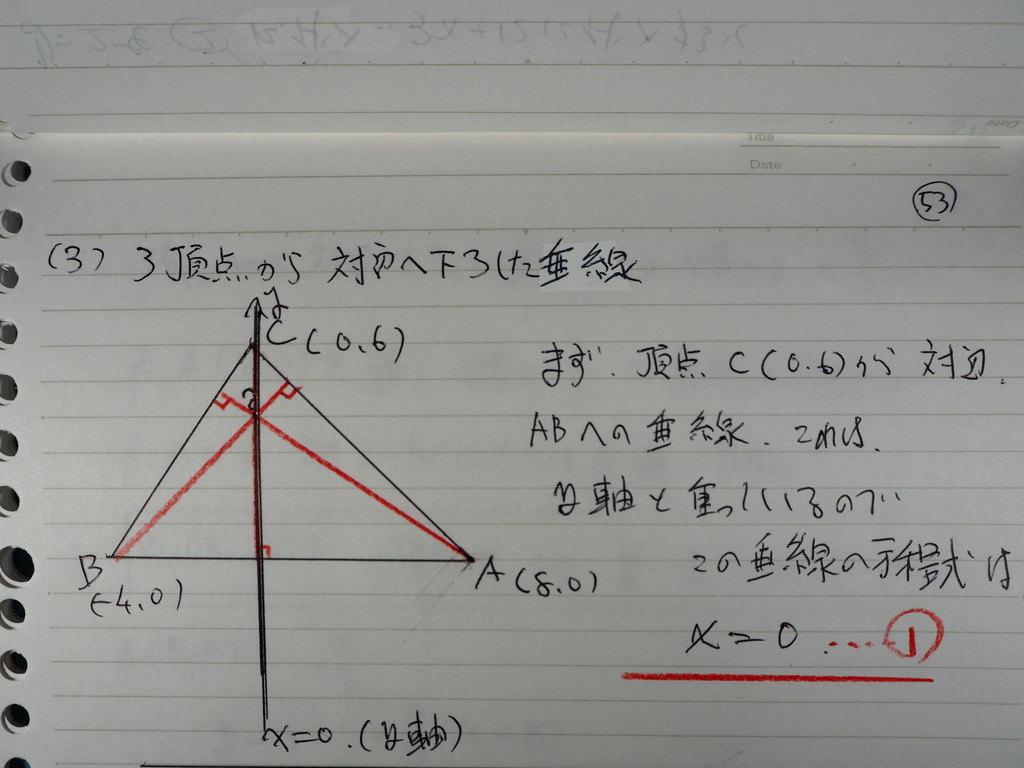 Title
Date
53
(3) 3頂点から対辺へ下ろした垂線
y
C (0,6)
まず、頂点 C(0,6)から対辺
ABへの垂線、これは、
y軸と重っているので
この垂線の方程式は
x=0 ……①
B
(-4,0)
A (8,0)
x=0.(y軸)